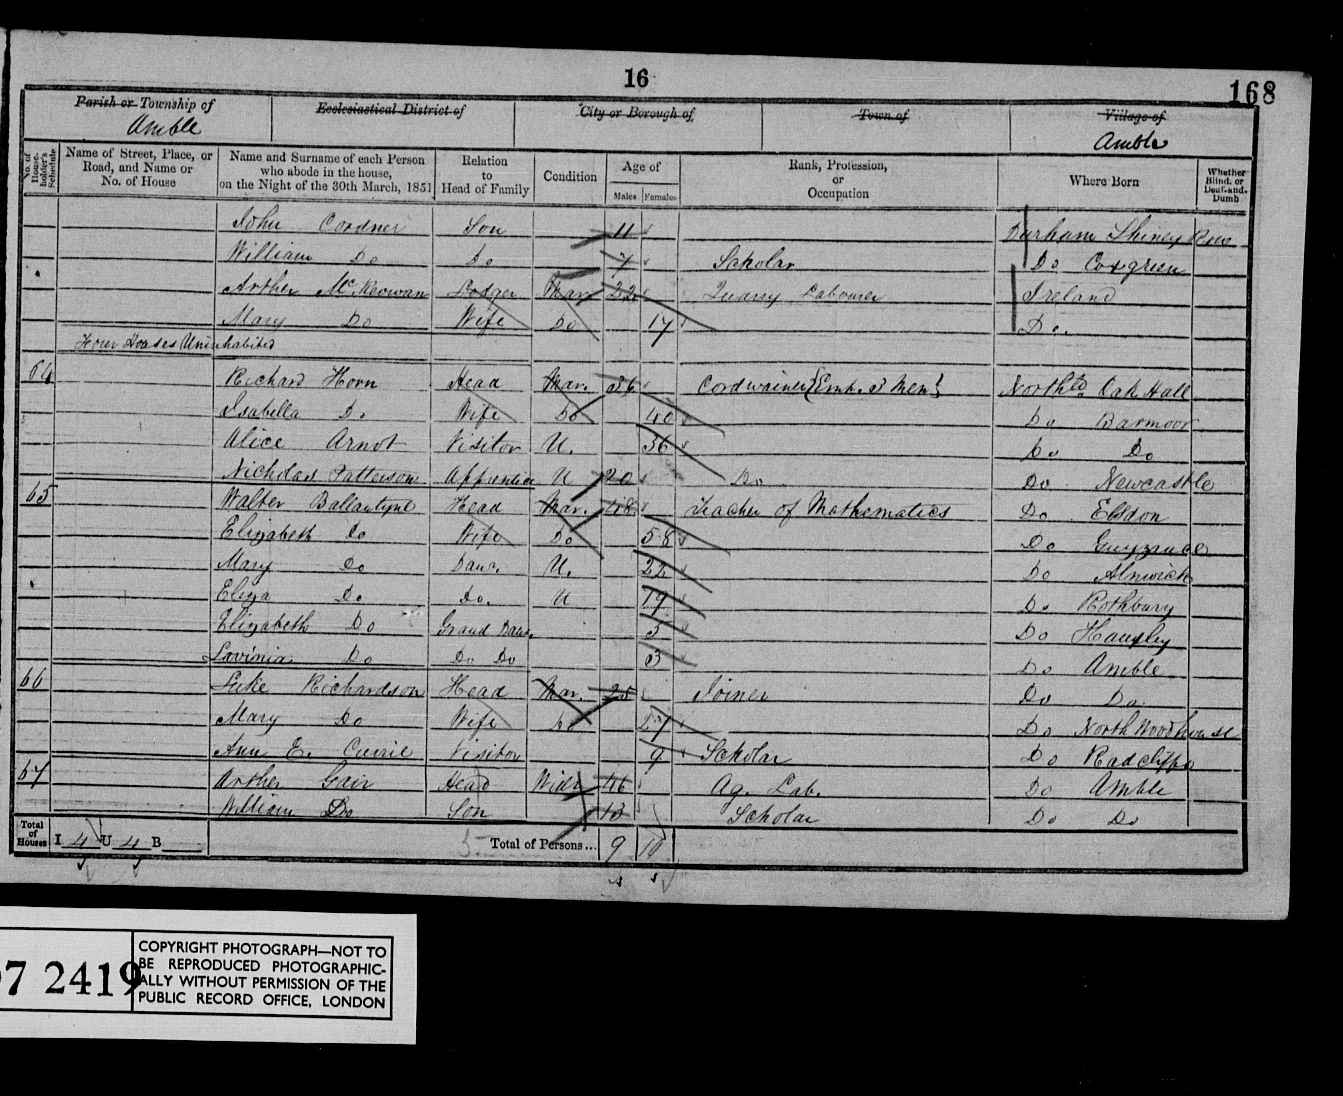 16
168
Parish or Township of
Amble
Ecclesiastical District of
City or Borough of
Town of
Village of
Amble
No. of House-holder's Schedule
Name of Street, Place, or Road, and Name or No. of House
Name and Surname of each Person who abode in the house, on the Night of the 30th March, 1851
Relation to Head of Family
Condition
Age of
Males Females
Rank, Profession, or Occupation
Where Born
Whether Blind, or Deaf-and-Dumb
John Cordner Son 11 Durham Shiney Row
William Do Do 7 Scholar Do Coxgreen
Arther McKeowan Lodger Mar 22 Quarry Labourer Ireland
Mary Do Wife Do 17 Do.
Four Houses Uninhabited
64 Richard Horn Head Mar. 36 Cordwainer (Emp. 2 Men) Northd. Oak Hall
Isabella Do Wife Do 40 Do Barmoor
Alice Arnot Visitor U. 36 Do Do
Nicholas Patterson Apprentice U 20 Do Do Newcastle
65 Walter Ballantyne Head Mar. 48 Teacher of Mathematics Do Elsdon
Elizabeth Do Wife Do 58 Do Guyzance
Mary Do Daur. U. 22 Do Alnwick
Eliza Do Do. U 19 Do Rothbury
Elizabeth Do Grand Daur. 5 Do Hauxley
Lavinia Do Do Do 3 Do Amble
66 Luke Richardson Head Mar. 25 Joiner Do Do
Mary Do Wife Do 27 Do North
Ann E. Currie Visitor 9 Scholar Do Radcliffe
67 Arther Gair Head Widr 46 Ag. Lab. Do Amble
William Do Son 13 Scholar Do Do
Total of Houses I 4 U 4 B
Total of Persons... 9 10
07 2419
COPYRIGHT PHOTOGRAPH—NOT TO
BE REPRODUCED PHOTOGRAPHIC-
ALLY WITHOUT PERMISSION OF THE
PUBLIC RECORD OFFICE, LONDON